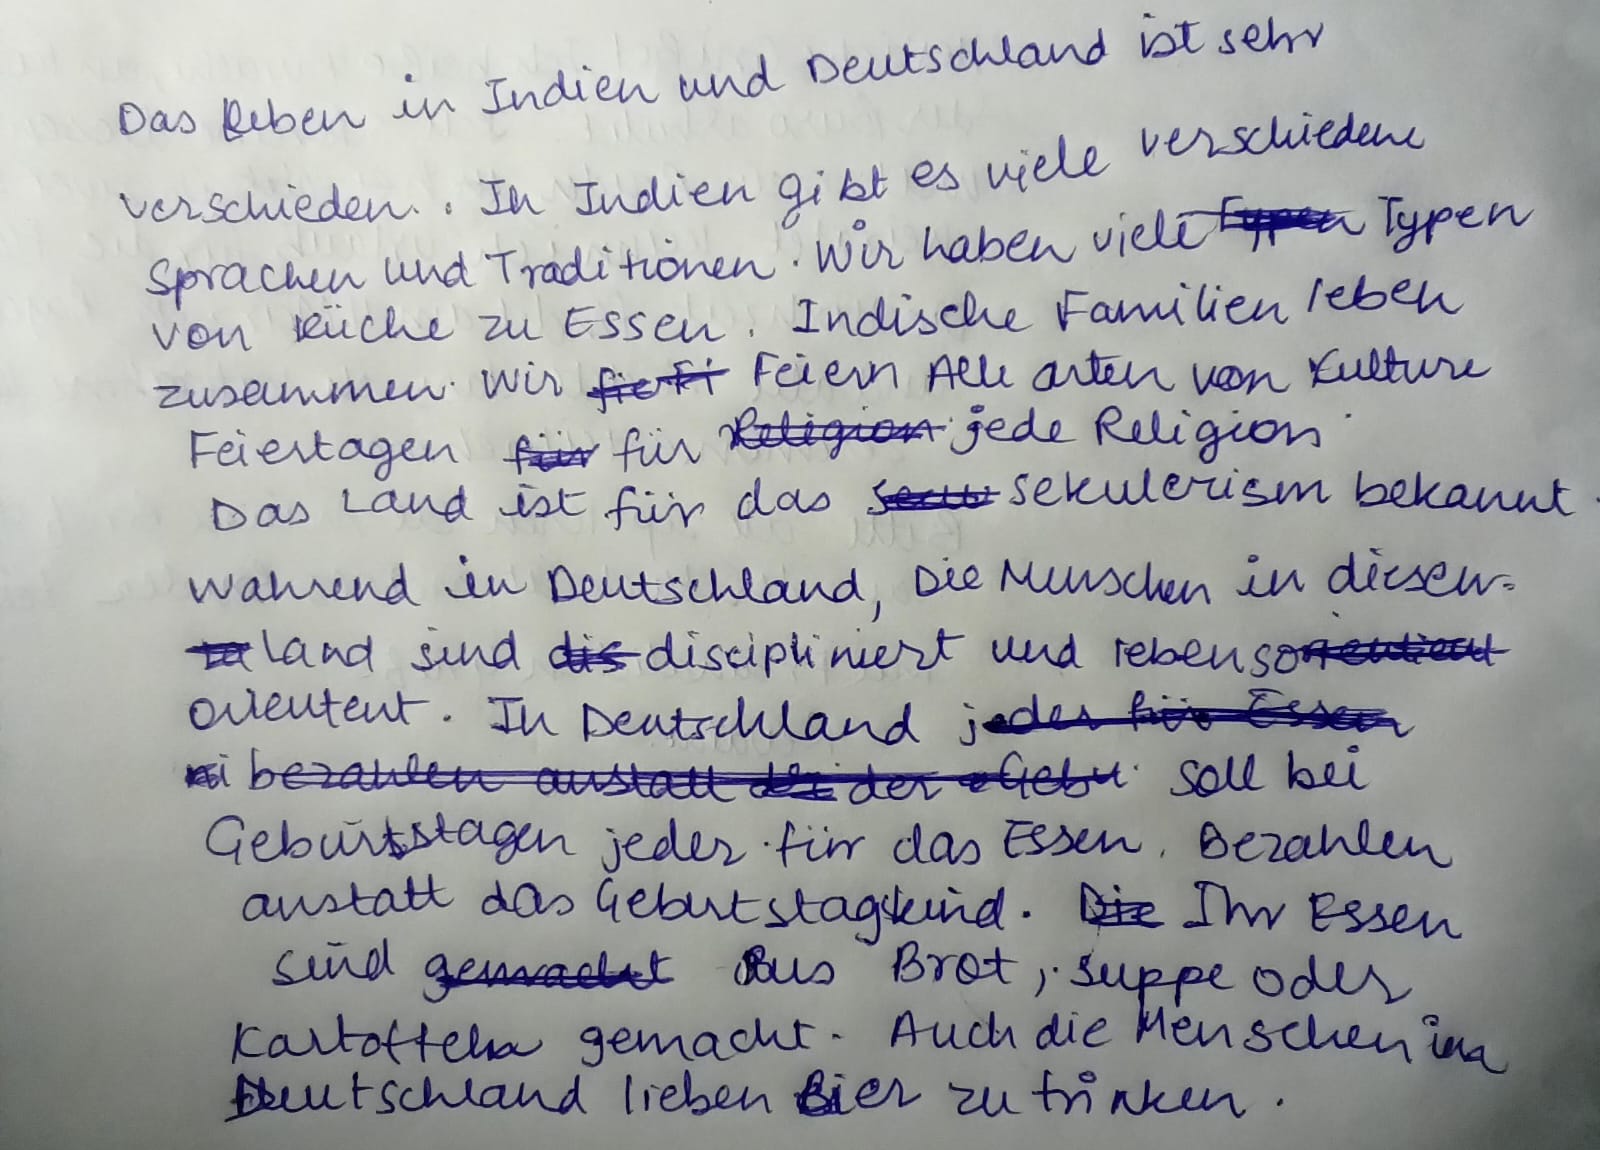 Das Leben in Indien und Deutschland ist sehr
verschieden. In Indien gibt es viele verschiedene
Sprachen und Traditionen. Wir haben viele Typen Typen
von Küche zu Essen. Indische Familien leben
zusammen. Wir Feiern Alle arten von Kulture
Feiertagen für für Religion jede Religion.
Das Land ist für das sekulerism bekannt.
Während in Deutschland, Die Menschen in diesen
land sind dis discipliniert und lebenso
orientent. In Deutschland jeder für Essen
bezahlen anstatt der Gebu soll bei
Geburtstagen jeder für das Essen. Bezahlen
anstatt das Geburtstagkind. Die Ihr Essen
sind gemacht Aus Brot, Suppe oder
Kartoffeln gemacht. Auch die Menschen in
Deutschland lieben Bier zu trinken.